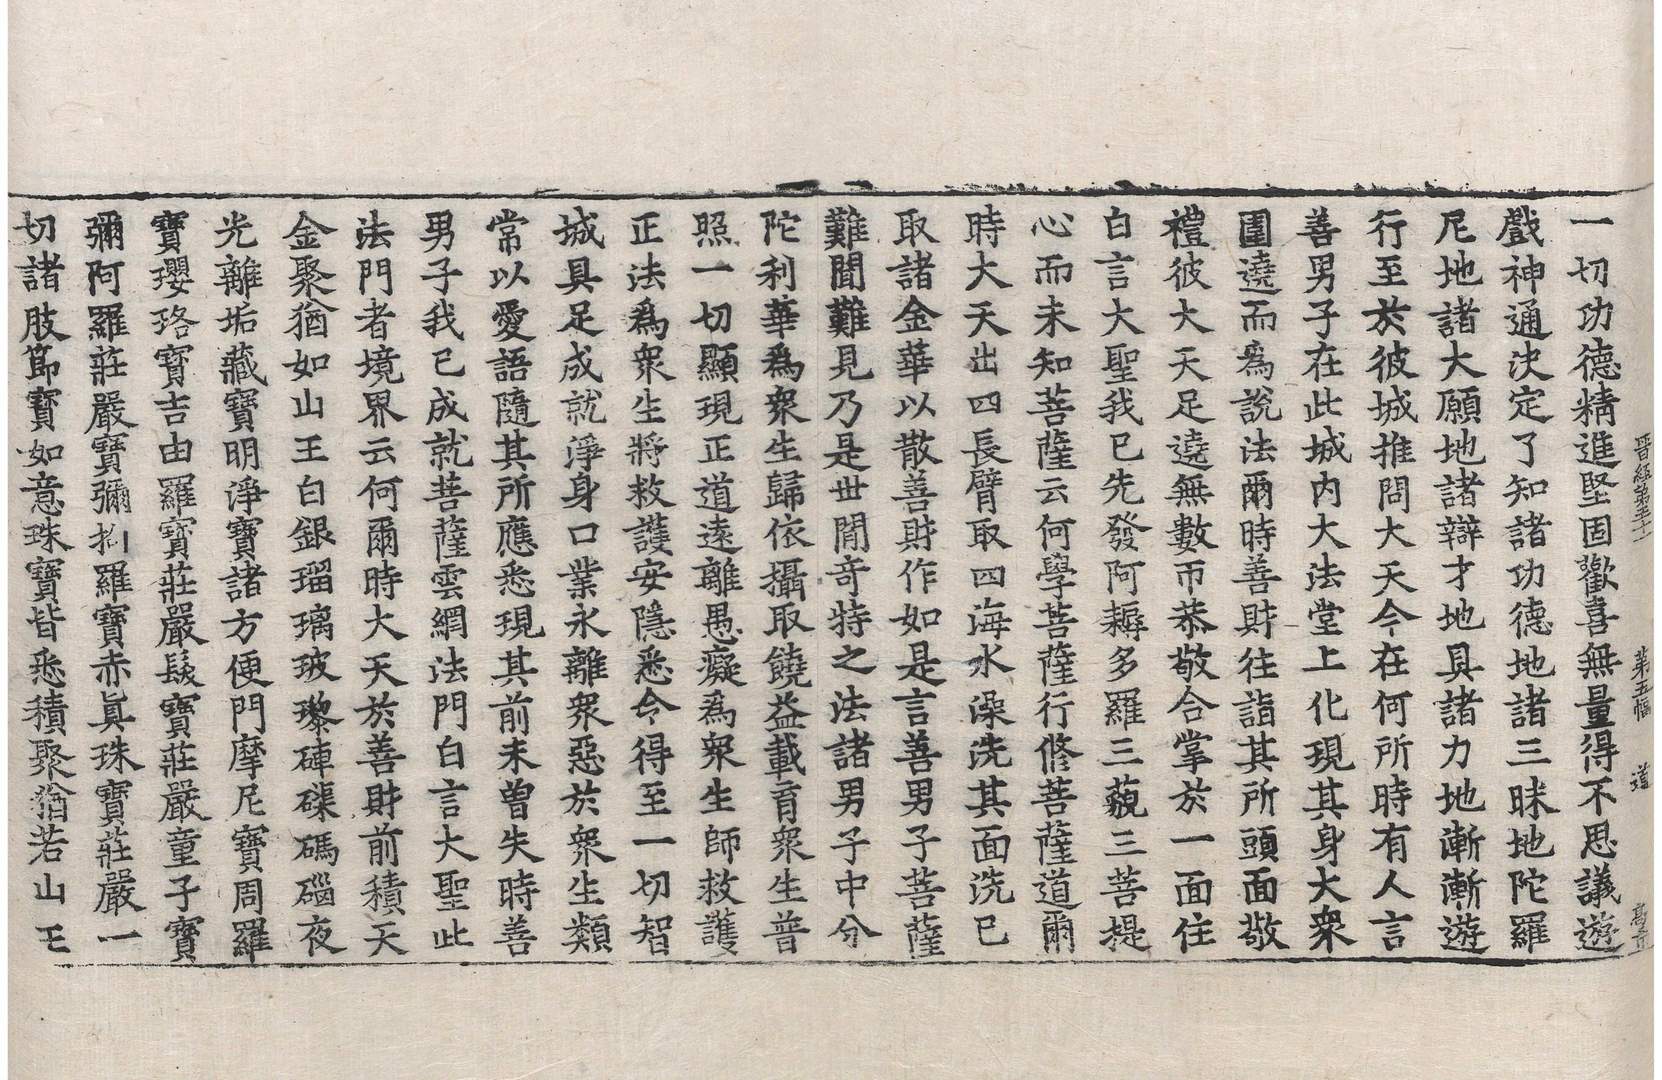 晉經第五十 第五幅 道
一切功德精進堅固歡喜無量得不思議遊
戲神通決定了知諸功德地諸三昧地陀羅
尼地諸大願地諸辯才地具諸力地漸漸遊
行至於彼城推問大天今在何所時有人言
善男子在此城內大法堂上化現其身大衆
圍遶而爲說法爾時善財往詣其所頭面敬
禮彼大天足遶無數帀恭敬合掌於一面住
白言大聖我已先發阿耨多羅三藐三菩提
心而未知菩薩云何學菩薩行修菩薩道爾
時大天出四長臂取四海水澡洗其面洗已
取諸金華以散善財作如是言善男子菩薩
難聞難見乃是世閒奇特之法諸男子中分
陀利華爲衆生歸依攝取饒益載育衆生普
照一切顯現正道遠離愚癡爲衆生師救護
正法爲衆生將救護安隱悉令得至一切智
城具足成就淨身口業永離衆惡於衆生類
常以愛語隨其所應悉現其前未曽失時善
男子我已成就菩薩雲網法門白言大聖此
法門者境界云何爾時大天於善財前積天
金聚猶如山王白銀瑠璃玻瓈硨磲碼碯夜
光離垢藏寶明淨寶諸方便門摩尼寶周羅
寶瓔珞寶吉由羅寶莊嚴髮寶莊嚴童子寶
彌阿羅莊嚴寶彌抝羅寶赤眞珠寶莊嚴一
切諸肢節寶如意珠寶皆悉積聚猶若山王